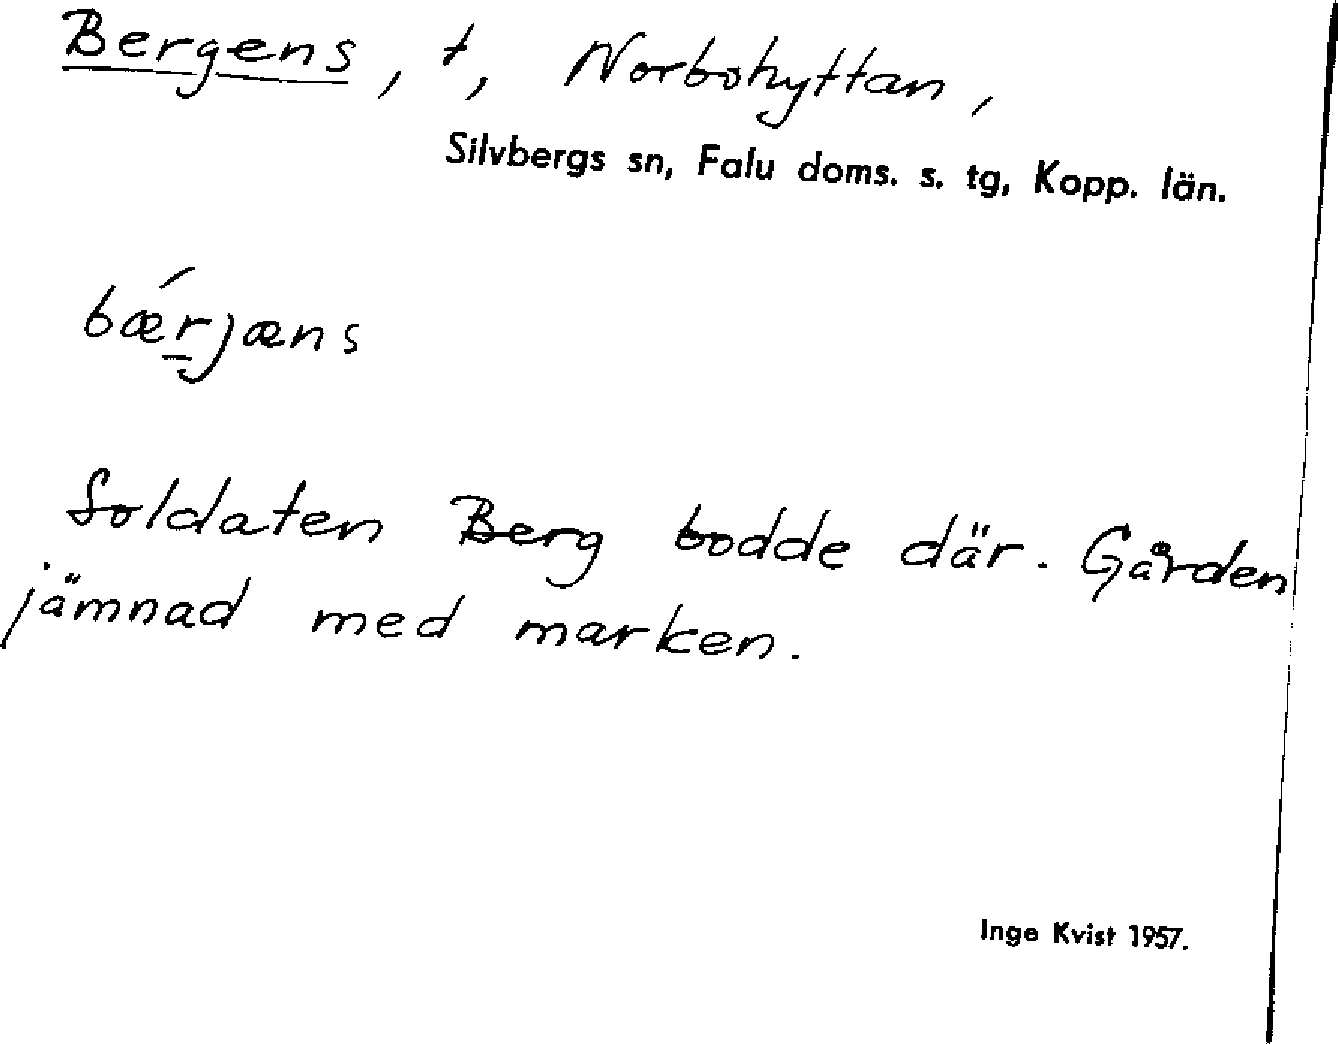 Bergens, t, Norbohyttan,
Silvbergs sn, Falu doms. s. tg, Kopp. län.
bǽr̲jæns
Soldaten Berg bodde där. Gården
jämnad med marken.
Inge Kvist 1957.